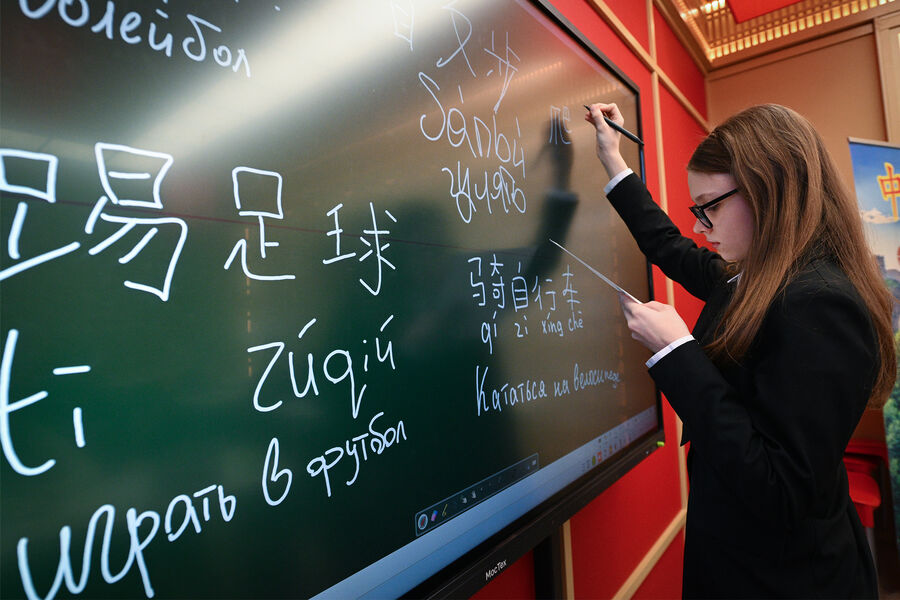 волейбол
步
Sànbù
гулять
踢足球
tī zúqiú
играть в футбол
骑自行车
qí zì xíng chē
Кататься на велосипеде
МосТех
中